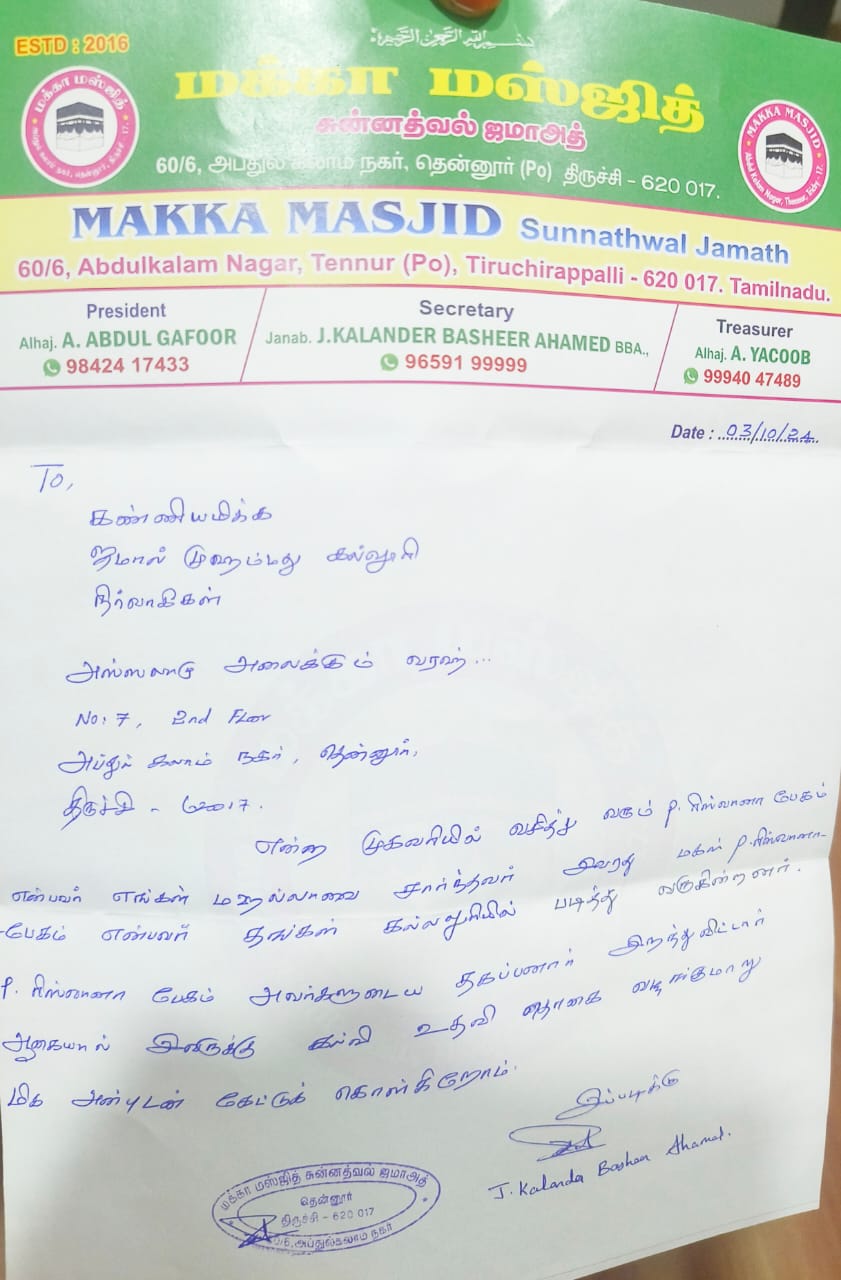 ESTD : 2016
بسم الله الرحمن الرحيم
மக்கா மஸ்ஜித்
சுன்னத்வல் ஜமாஅத்
60/6, அப்துல் கலாம் நகர், தென்னூர் (Po) திருச்சி - 620 017.
மக்கா மஸ்ஜித்
MAKKA MASJID
Abdul Kalam Nagar, Thennur, Trichy - 17.
MAKKA MASJID Sunnathwal Jamath
60/6, Abdulkalam Nagar, Tennur (Po), Tiruchirappalli - 620 017. Tamilnadu.
President
Alhaj. A. ABDUL GAFOOR
98424 17433
Secretary
Janab. J.KALANDER BASHEER AHAMED BBA.,
96591 99999
Treasurer
Alhaj. A. YACOOB
99940 47489
Date : 03/10/24
To,
கண்ணியமிக்க
ஜமால் முஹம்மது கல்லூரி
நிர்வாகிகள்
அஸ்ஸலாமு அலைக்கும் வரஹ்...
No: 7, 2nd Floor
அப்துல் கலாம் நகர், தென்னூர்,
திருச்சி - 620017.
என்ற முகவரியில் வசித்து வரும் P. ரிஸ்வானா பேகம்
என்பவர் எங்கள் மஹல்லாவை சார்ந்தவர் அவரது மகள் P. ரிஸ்வானா-
-பேகம் என்பவர் தங்கள் கல்லூரியில் படித்து வருகின்றனர்.
P. ரிஸ்வானா பேகம் அவர்களுடைய தகப்பனார் இறந்துவிட்டார்
ஆகையால் இவருக்கு கல்வி உதவி தொகை வழங்குமாறு
மிக அன்புடன் கேட்டுக் கொள்கிறோம்.
இப்படிக்கு
J. Kalander Basheer Ahamed.
மக்கா மஸ்ஜித் சுன்னத்வல் ஜமாஅத்
தென்னூர்
திருச்சி - 620 017
60/6, அப்துல்கலாம் நகர்